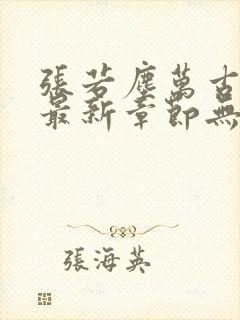 張若塵萬古
最新章節無
張海英